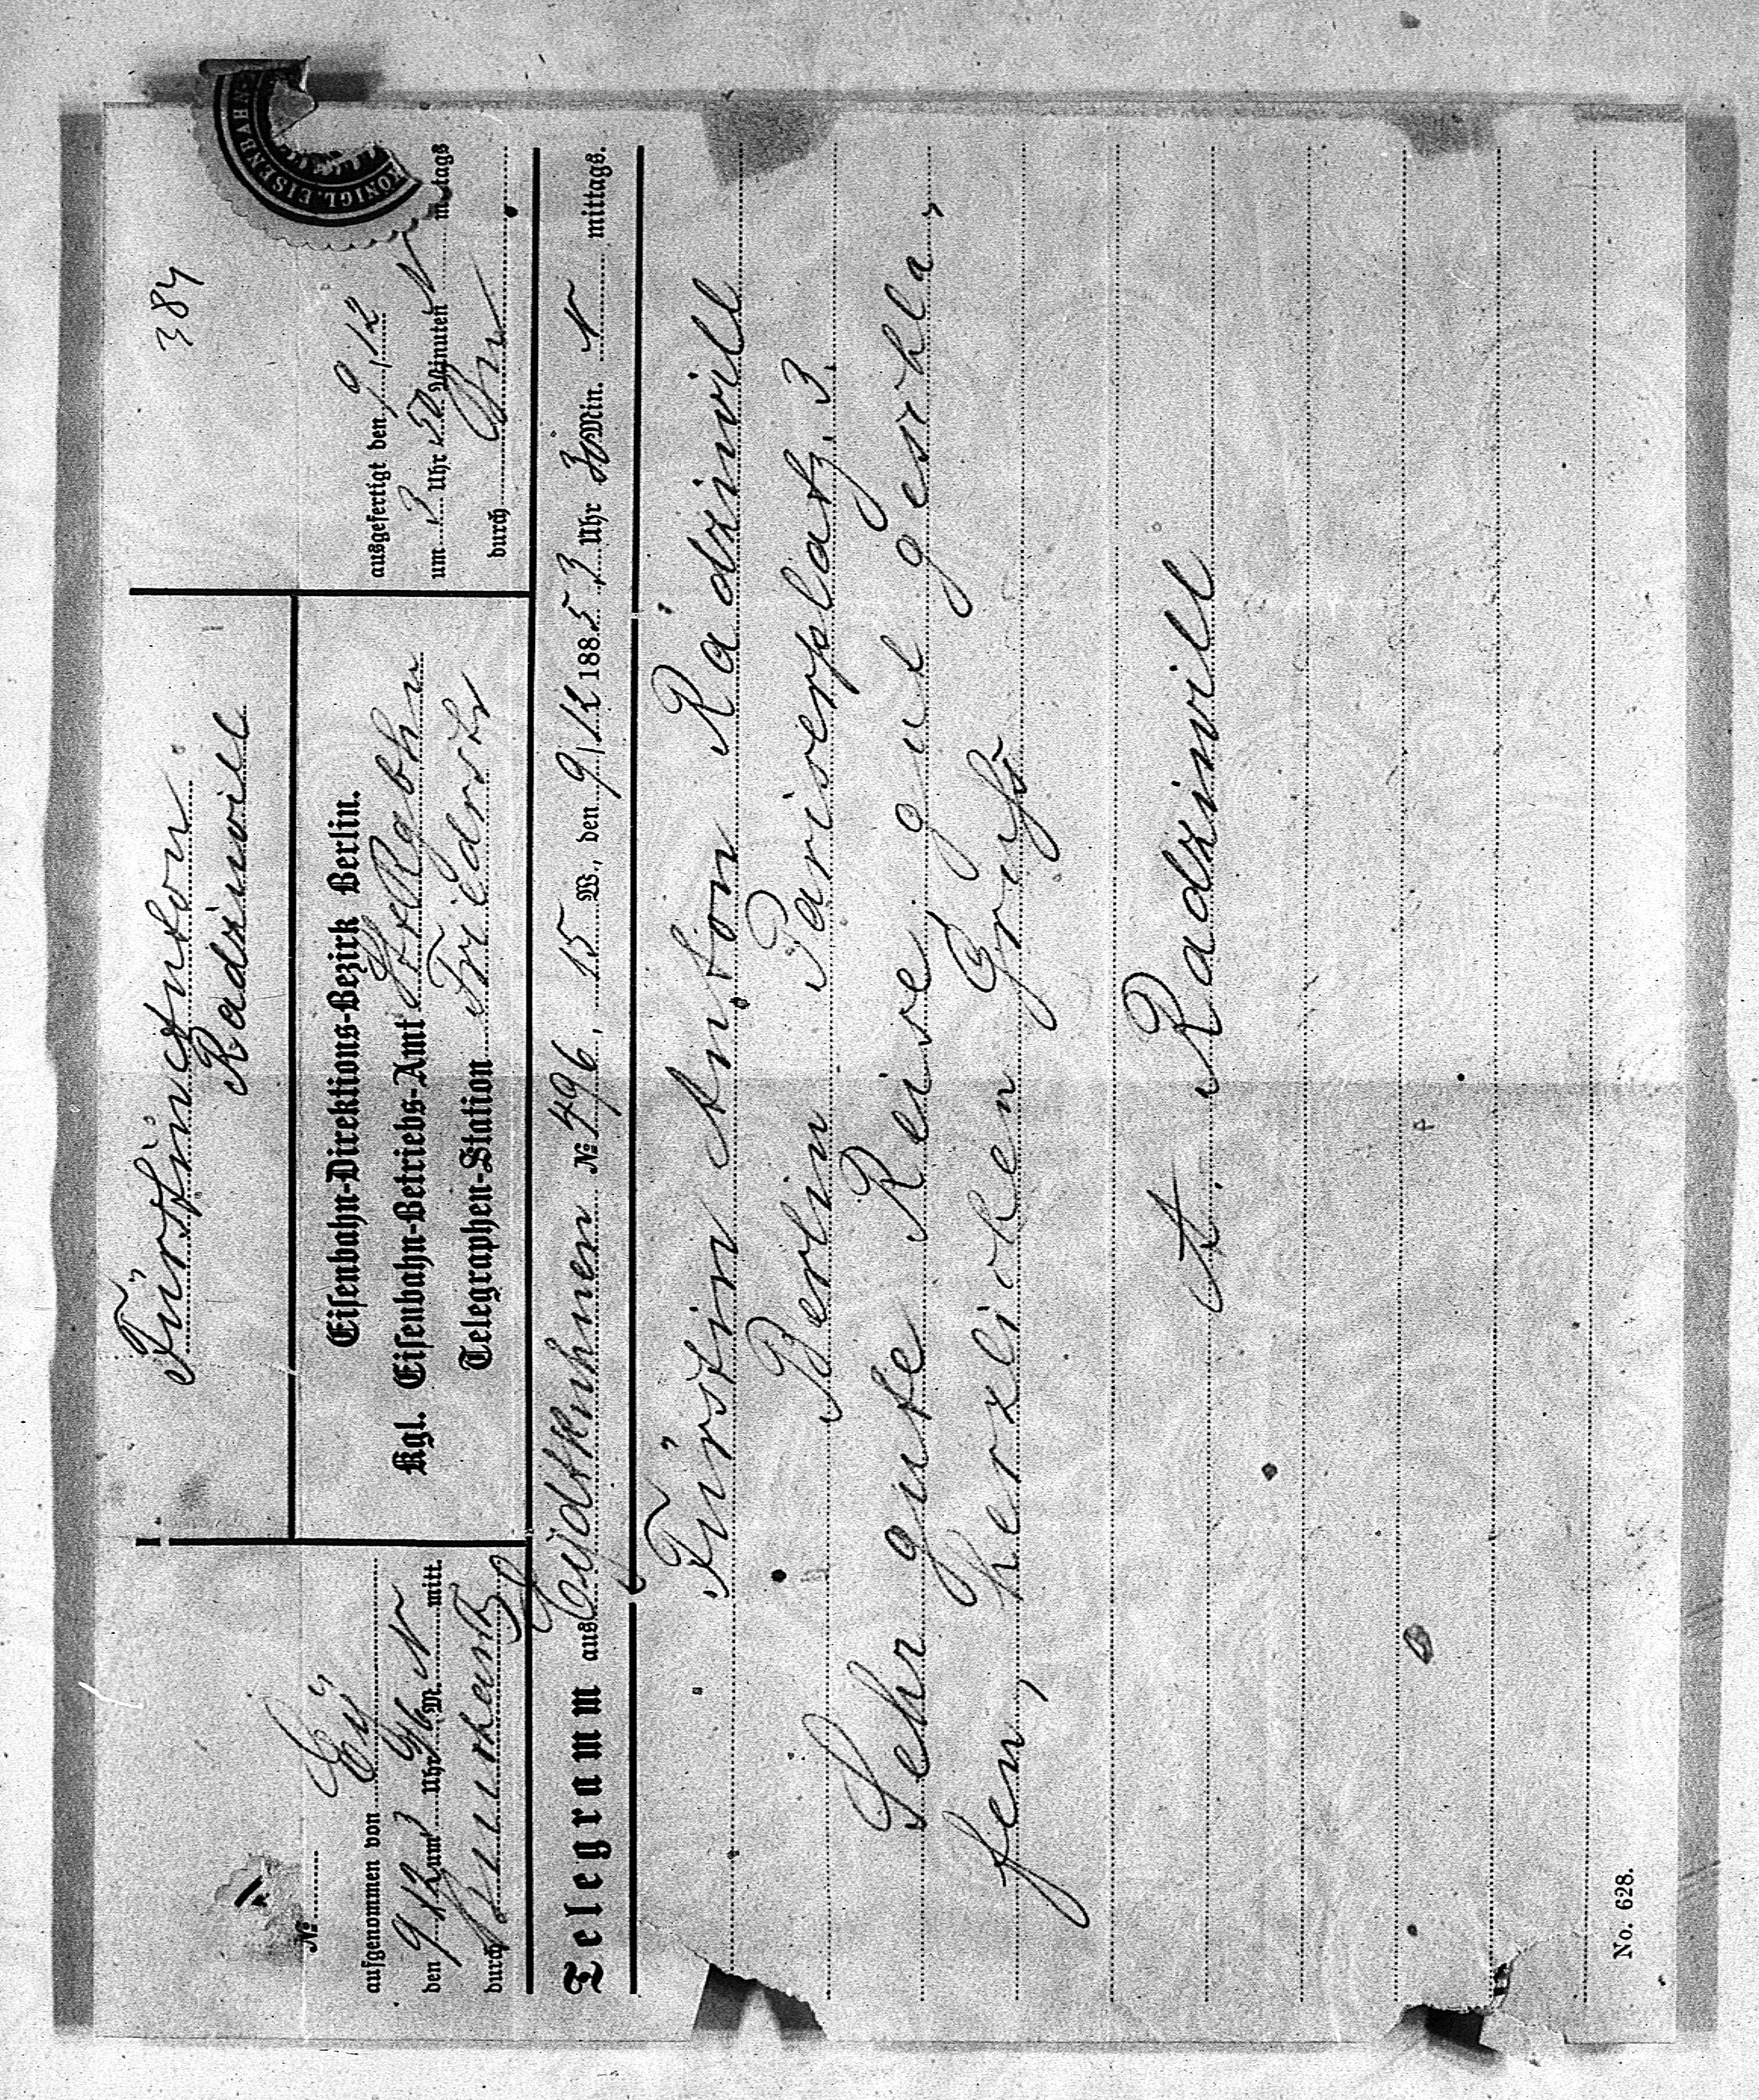 384
KÖNIGL. EISENBAHN
Fürstin Anton
Radziwill
№
aufgenommen von Eij
den 9/12 um 3 Uhr 46 M. N mitt.
durch
Eisenbahn-Direktions-Bezirk Berlin.
Kgl. Eisenbahn-Betriebs-Amt
Telegraphen-Station Friedrstr
ausgefertigt den 9/12
um 3 Uhr 50 Minuten N mittags
durch
Telegramm aus Eydtkuhnen № 496, 15 W, den 9/12 1885 3 Uhr 30 Min. N mittags.
Fürstin Anton Radziwill
Berlin Pariserplatz. 3.
Sehr gute Reise, gut geschla,
fen, herzlichen Gruß
A. Radziwill
No. 628.